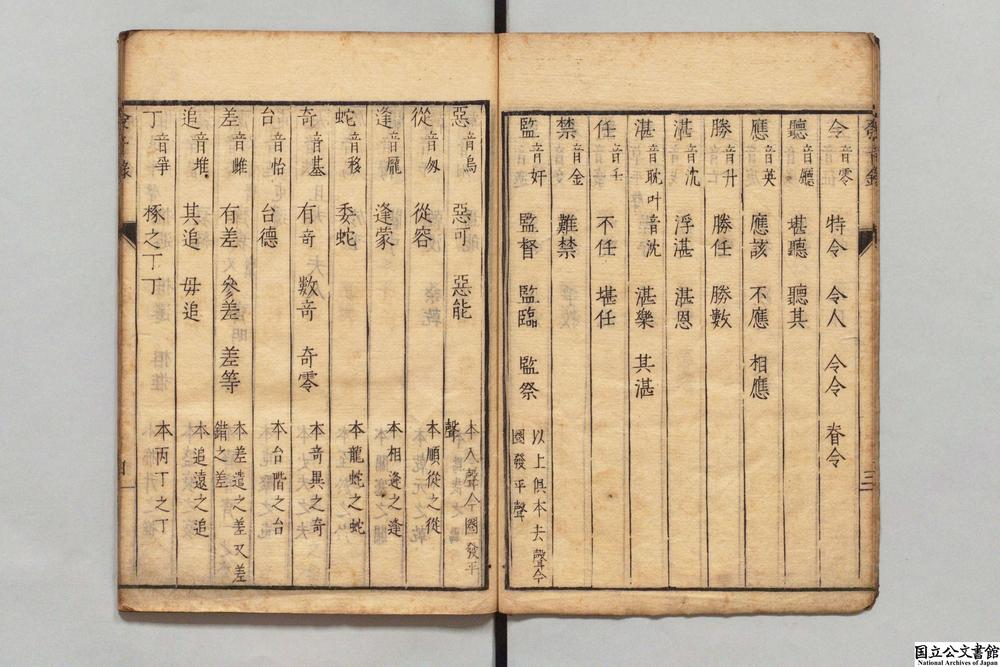 令 音零 特令 令人 令令 眷令
聽 音廳 堪聽 聽其
應 音英 應該 不應 相應
勝 音升 勝任 勝數
湛 音沈 浮湛 湛恩
湛 音耽叶音沈 湛樂 其湛
任 音壬 不任 堪任
禁 音金 難禁
監 音奸 監督 監臨 監祭 以上俱本去聲今圈發平聲
惡 音烏 惡可 惡能 本入聲今圈發平聲
從 音匆 從容 本順從之從
逢 音龐 逢蒙 本相逢之逢
蛇 音移 委蛇 本龍蛇之蛇
奇 音基 有奇 數奇 奇零 本奇異之奇
台 音怡 台德 本台階之台
差 音雌 有差 參差 差等 本差遣之差又差錯之差
追 音堆 其追 毋追 本追遠之追
丁 音爭 椓之丁丁 本丙丁之丁
三
国立公文書館
National Archives of Japan